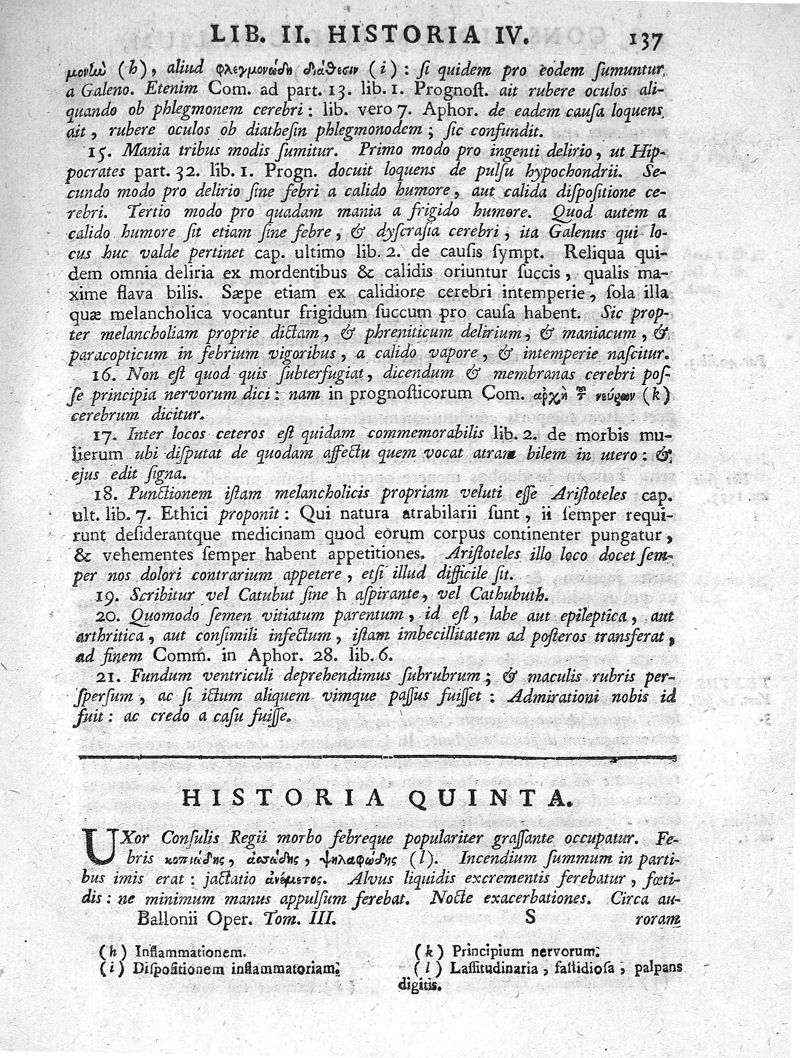 LIB. II. HISTORIA IV. 137
μονὴν (h), aliud φλεγμονώδη διάθεσιν (i): ſi quidem pro eodem ſumuntur
a Galeno. Etenim Com. ad part. 13. lib. 1. Prognoſt. ait rubere oculos ali-
quando ob phlegmonem cerebri: lib. vero 7. Aphor. de eadem cauſa loquens
ait, rubere oculos ob diatheſin phlegmonodem; ſic confundit.
15. Mania tribus modis ſumitur. Primo modo pro ingenti delirio, ut Hip-
pocrates part. 32. lib. 1. Progn. docuit loquens de pulſu hypochondrii. Se-
cundo modo pro delirio ſine febri a calido humore, aut calida diſpoſitione ce-
rebri. Tertio modo pro quadam mania a frigido humore. Quod autem a
calido humore ſit etiam ſine febre, & dyſcraſia cerebri, ita Galenus qui lo-
cus huc valde pertinet cap. ultimo lib. 2. de cauſis ſympt. Reliqua qui-
dem omnia deliria ex mordentibus & calidis oriuntur ſuccis, qualis ma-
xime flava bilis. Sæpe etiam ex calidiore cerebri intemperie, ſola illa
quæ melancholica vocantur frigidum ſuccum pro cauſa habent. Sic prop-
ter melancholiam proprie dictam, & phreniticum delirium, & maniacum, &
paracopticum in febrium vigoribus, a calido vapore, & intemperie naſcitur.
16. Non eſt quod quis ſubterfugiat, dicendum & membranas cerebri poſ-
ſe principia nervorum dici: nam in prognoſticorum Com. ἀρχὴ τ͂ νεύρων (k)
cerebrum dicitur.
17. Inter locos ceteros eſt quidam commemorabilis lib. 2. de morbis mu-
lierum ubi diſputat de quodam affectu quem vocat atram bilem in utero: &
ejus edit ſigna.
18. Punctionem iſtam melancholicis propriam veluti eſſe Ariſtoteles cap.
ult. lib. 7. Ethici proponit: Qui natura atrabilarii ſunt, ii ſemper requi-
runt deſiderantque medicinam quod eorum corpus continenter pungatur,
& vehementes ſemper habent appetitiones. Ariſtoteles illo loco docet ſem-
per nos dolori contrarium appetere, etſi illud difficile ſit.
19. Scribitur vel Catubut ſine h aſpirante, vel Cathubuth.
20. Quomodo ſemen vitiatum parentum, id eſt, labe aut epileptica, aut
arthritica, aut conſimili infectum, iſtam imbecillitatem ad poſteros transferat,
ad finem Comm̃. in Aphor. 28. lib. 6.
21. Fundum ventriculi deprehendimus ſubrubrum; & maculis rubris per-
ſperſum, ac ſi ictum aliquem vimque paſſus fuiſſet: Admirationi nobis id
fuit: ac credo a caſu fuiſſe.
HISTORIA QUINTA.
UXor Conſulis Regii morbo febreque populariter graſſante occupatur. Fe-
bris κοπιώδης, ἀσώδης, ψηλαφώδης (l). Incendium ſummum in parti-
bus imis erat: jactatio ἀνέμετος. Alvus liquidis excrementis ferebatur, fœti-
dis: ne minimum manus appulſum ferebat. Nocte exacerbationes. Circa au-
Ballonii Oper. Tom. III. S roram
(h) Inflammationem.
(i) Diſpoſitionem inflammatoriam.
(k) Principium nervorum.
(l) Laſſitudinaria, faſtidioſa, palpans
digitis.